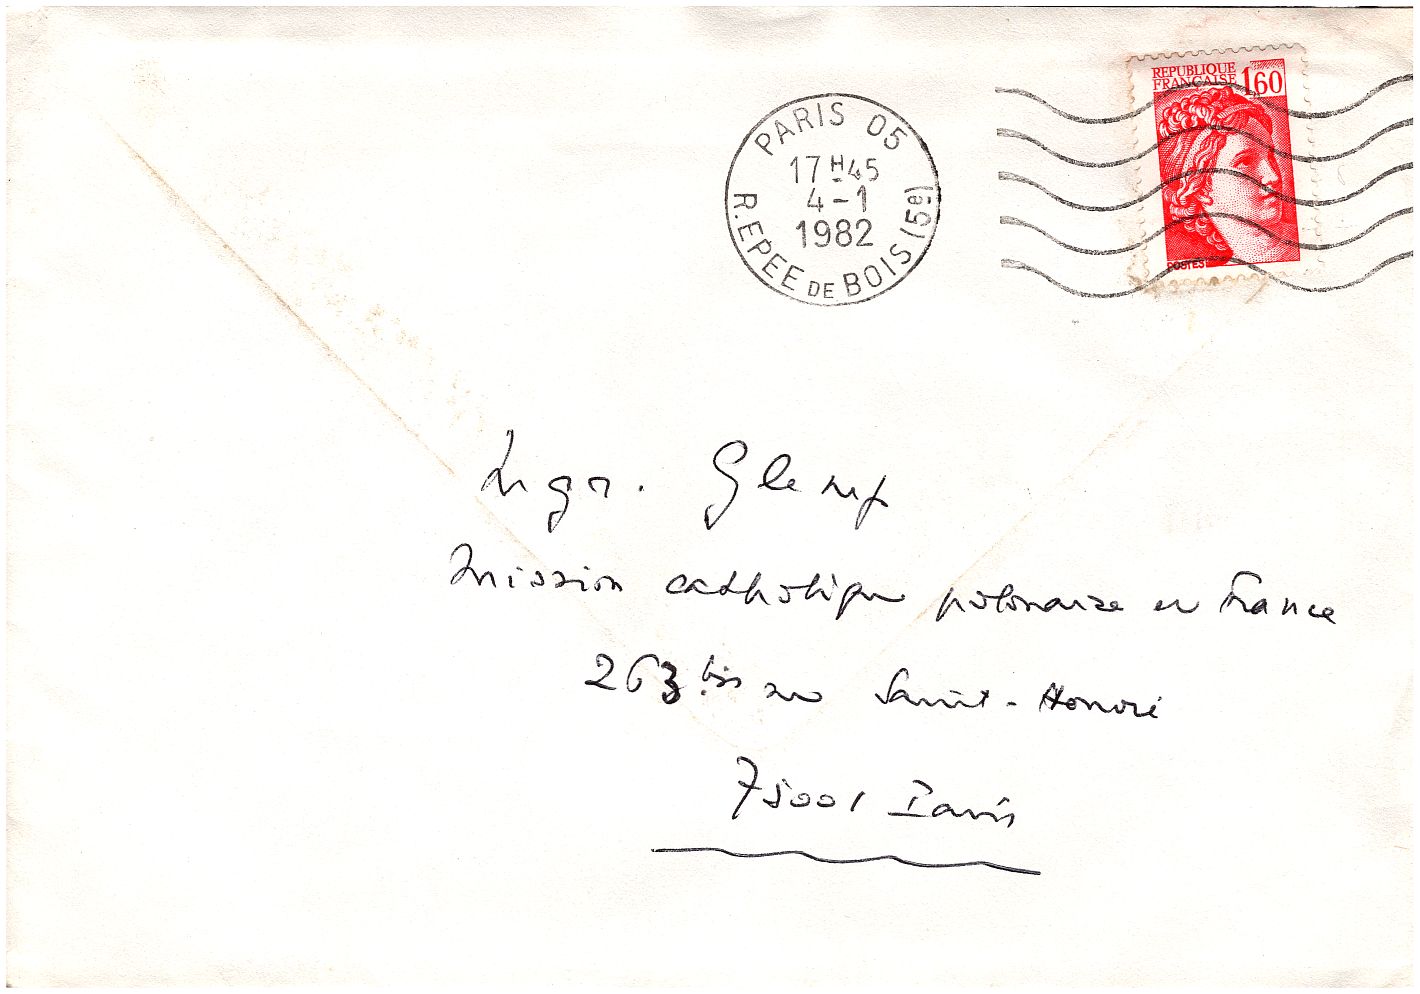 REPUBLIQUE
FRANÇAISE 1,60
POSTES
PARIS 05
17H45
4-1
1982
R. EPEE DE BOIS (5e)
Mgr. Glemp
Mission catholique polonaise en France
263 bis rue Saint-Honoré
75001 Paris